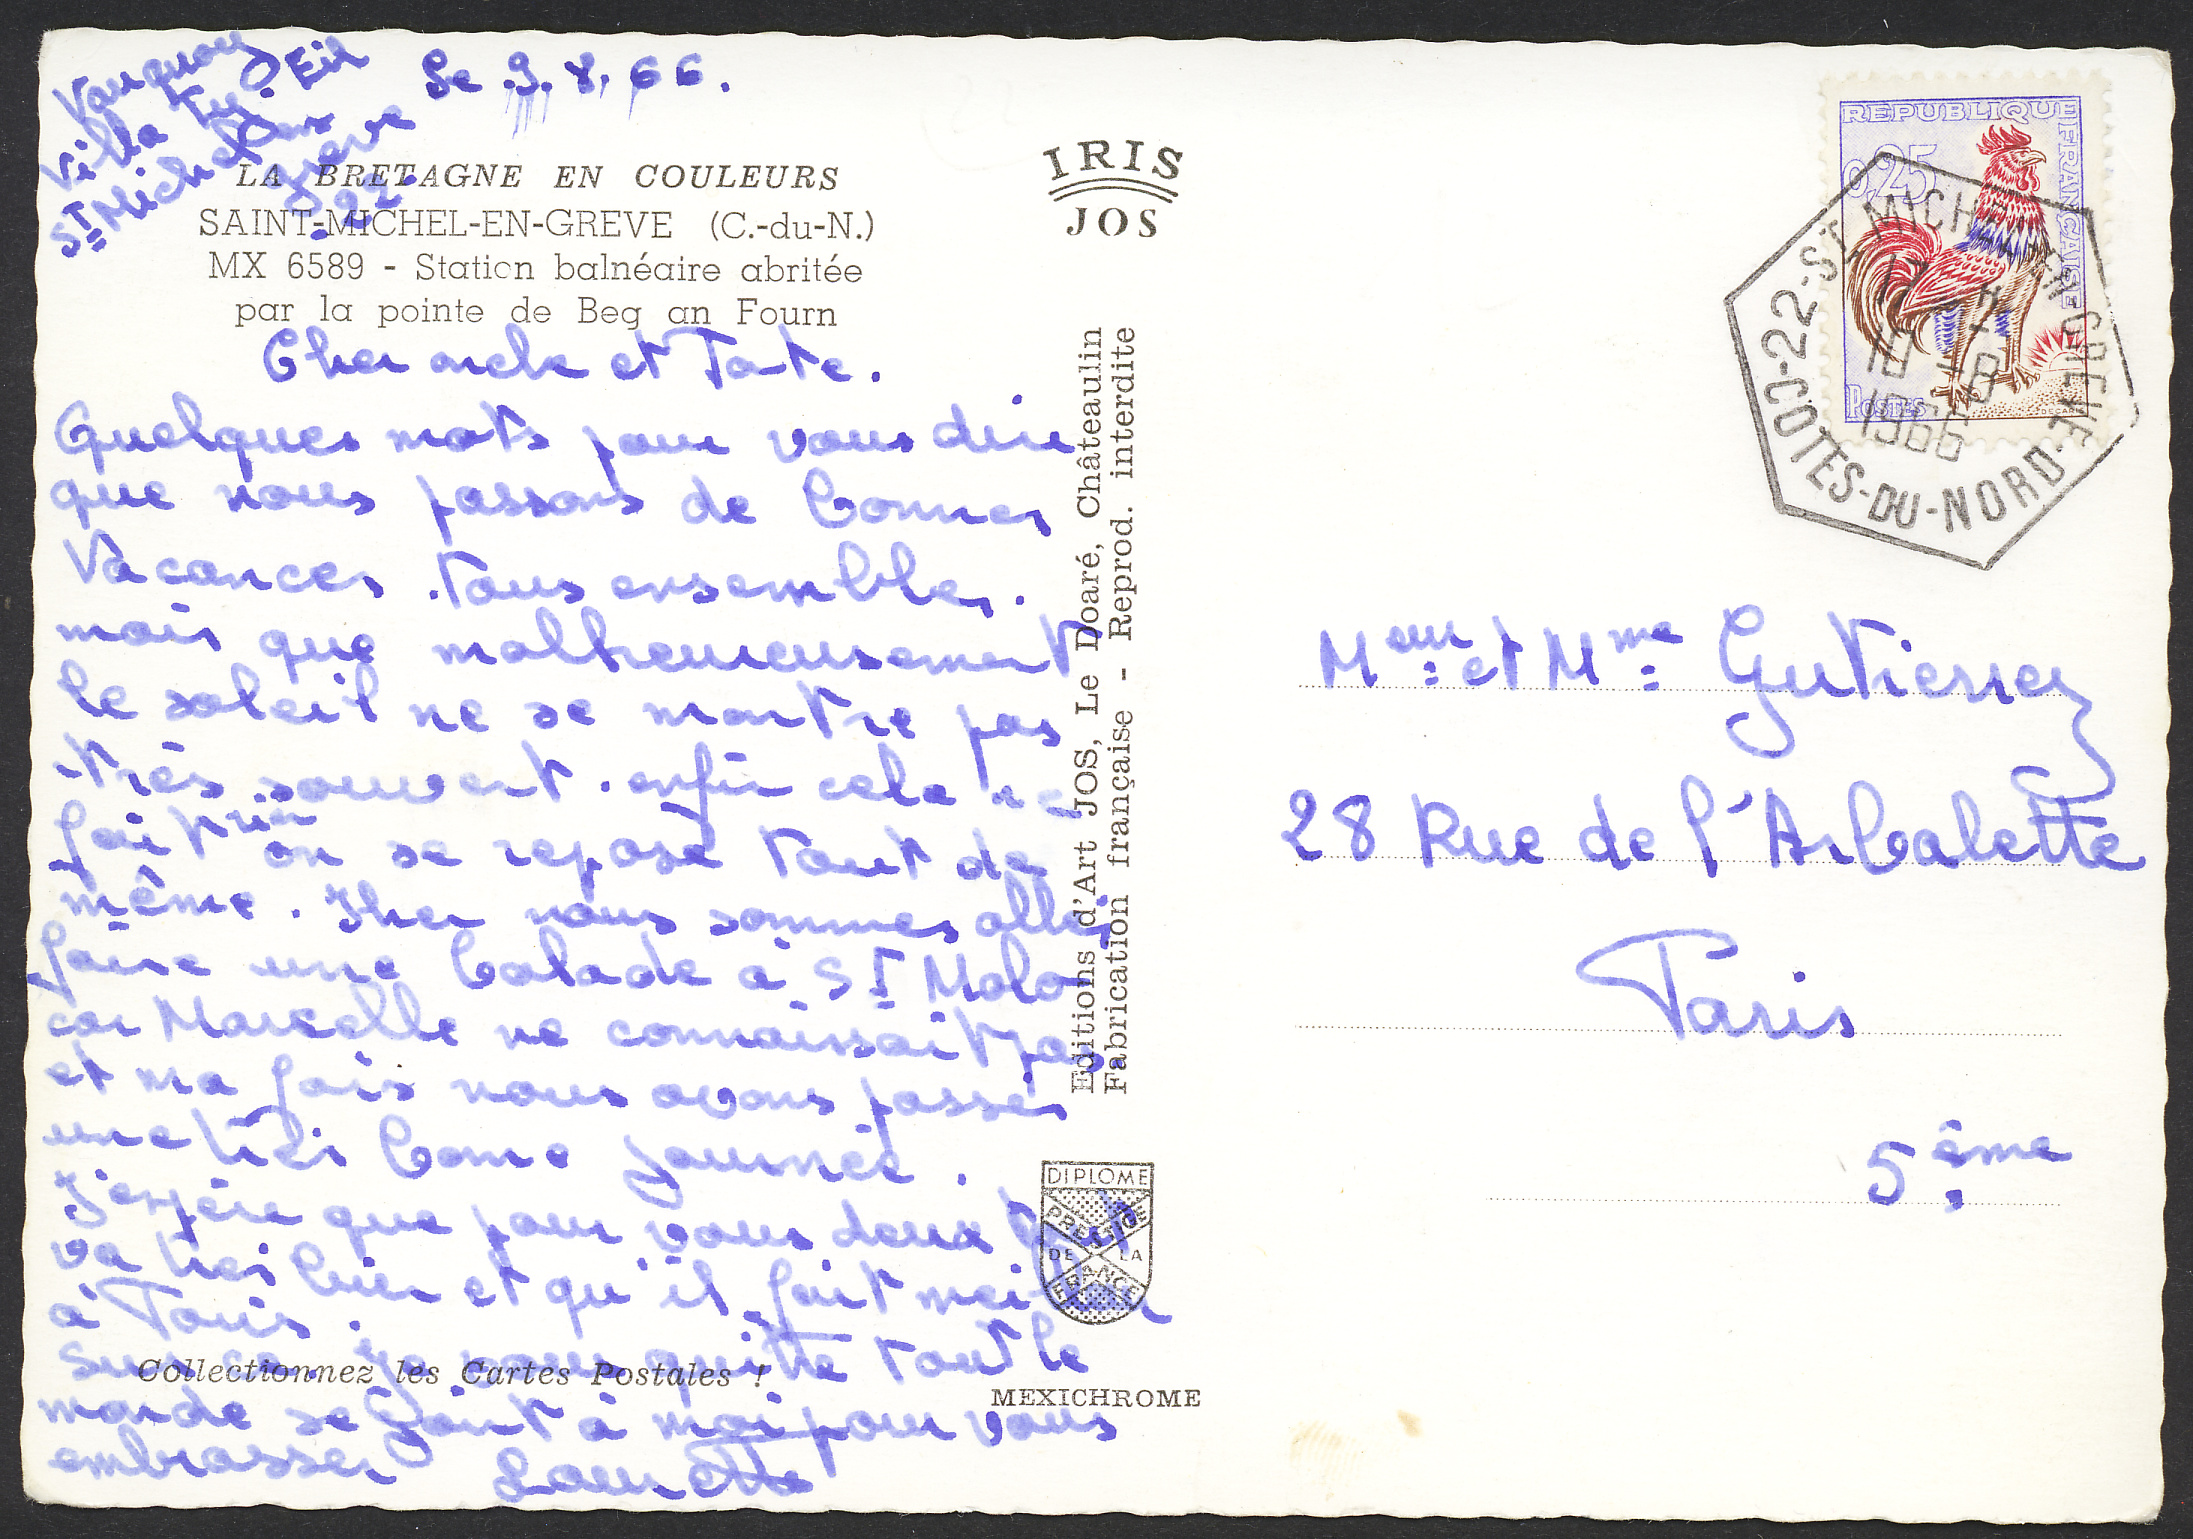 Vauquoy
Villa Ty. Eil
St Michel en
greve
22
Le 9. 8. 66.
LA BRETAGNE EN COULEURS
SAINT-MICHEL-EN-GREVE (C.-du-N.)
MX 6589 - Station balnéaire abritée
par la pointe de Beg an Fourn
Cher oncle et Tante.
Quelques mots pour vous dire
que nous passons de bonnes
Vacances. tous ensembles.
mais que malheureusement
le soleil ne se montre pas
très souvent. enfin cela ne
fait rien
on se repose tout de
même. Hier nous sommes allés
faire une balade à St Malo
car Marcelle ne connaissait pas
et ma fois nous avons passés
une très bonne journée.
J'espère que pour vous deux tout
va très bien et qu'il fait meilleur
à Paris.
Sur ce je vous quitte tout le
monde se joint à moi pour vous
embrasser Laurette
Collectionnez les Cartes Postales !
IRIS
JOS
Editions d'Art JOS, Le Doaré, Châteaulin
Fabrication française - Reprod. interdite
DIPLOME
PRESTIGE
DE LA
FRANCE
MEXICHROME
REPUBLIQUE FRANÇAISE
0,25
POSTES
DECARIS
22-ST MICHEL EN GREVE
COTES-DU-NORD
17 H
10 - 8
1966
Meur et Mme Gutierrez
28 Rue de l'Arbalette
Paris
5ème